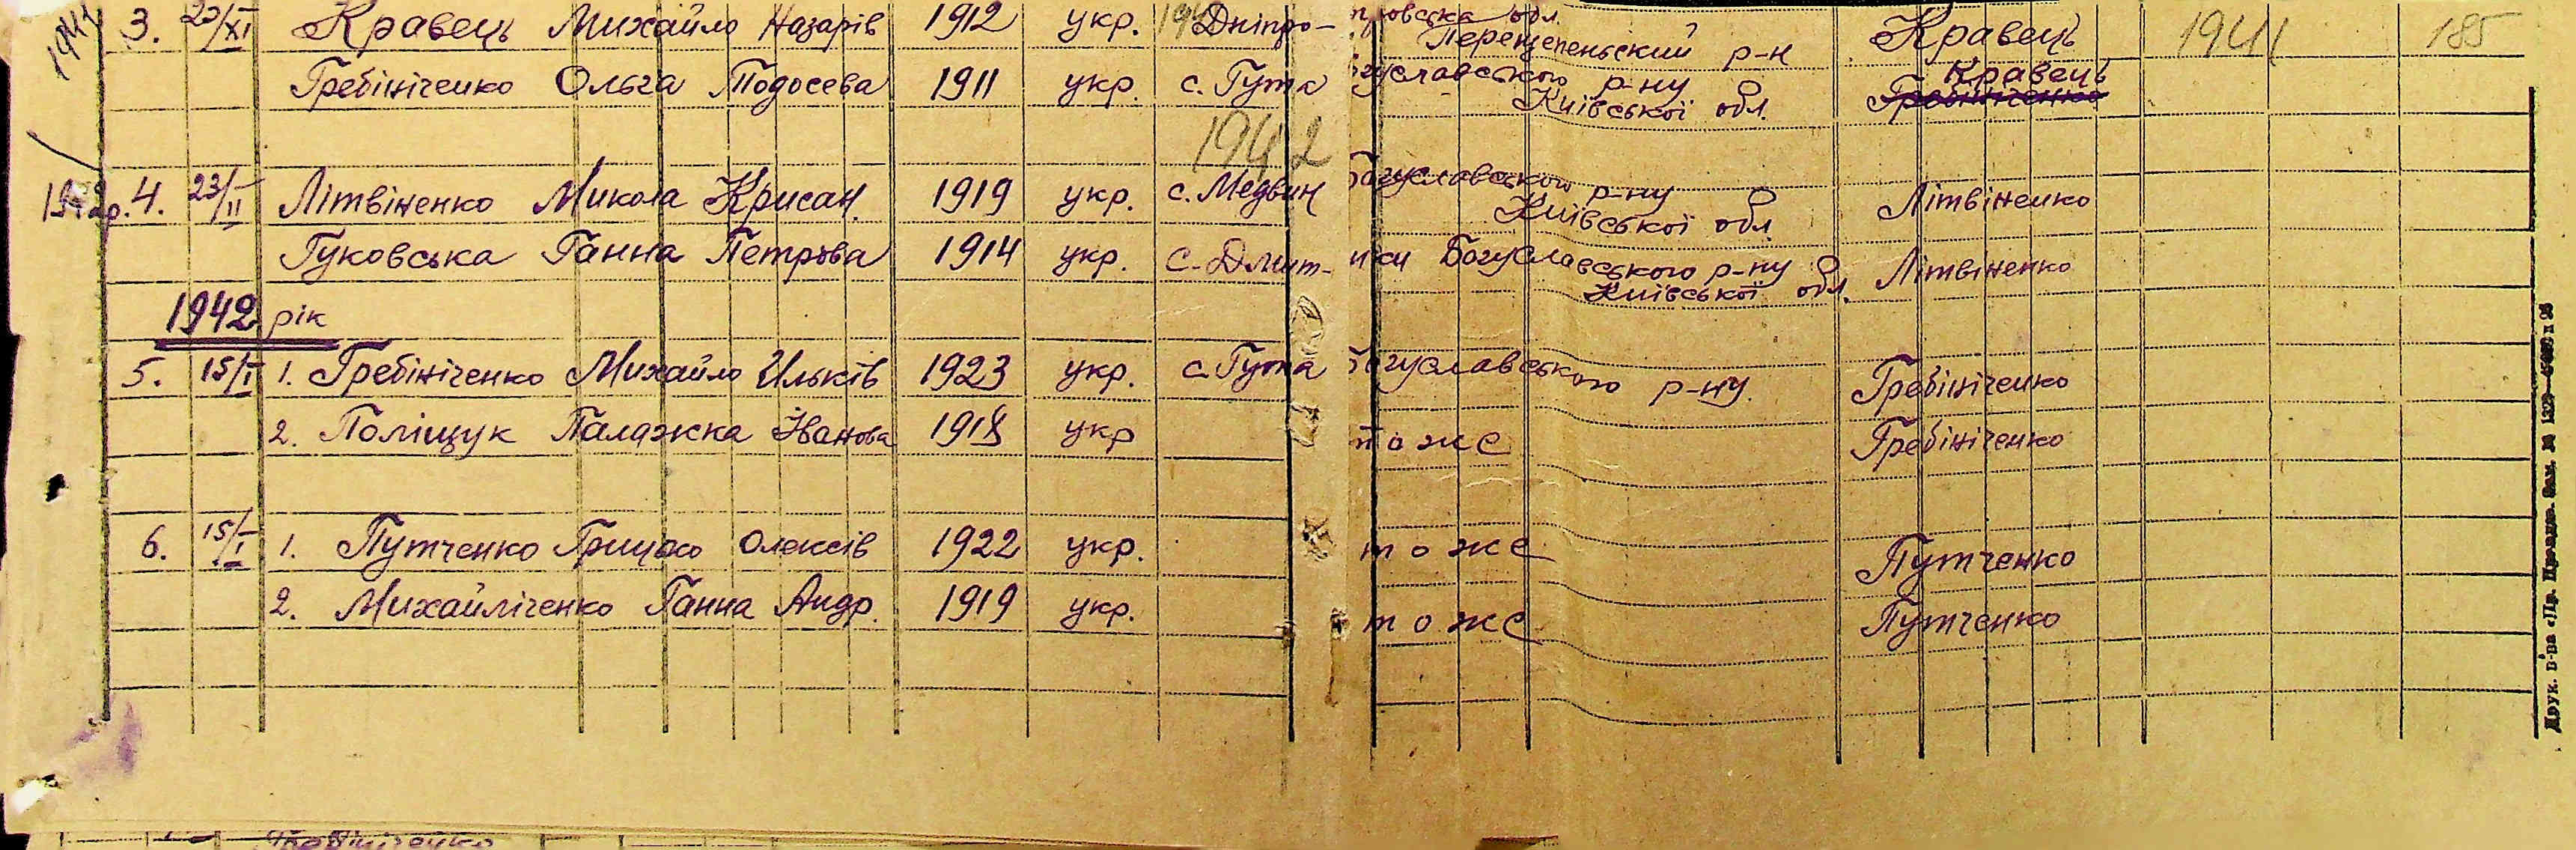 1941 3. 23/XI Кравець Михайло Назарів 1912 укр. Дніпро- провська обл. Перещепеньский р-н Кравець 1941 185
Гребініченко Ольга Тодосева 1911 укр. с. Гута Богуславського р-ну Київської обл. Кравець Гребініченко
1942
1942р. 4. 23/II Літвіненко Микола Крисан. 1919 укр. с. Медвин Богуславського р-ну Київської обл. Літвіненко
Гуковська Ганна Петрова 1914 укр. с. Дмит- ки Богуславського р-ну Київської обл. Літвіненко
1942 рік
5. 15/I 1. Гребініченко Михайло Ильків 1923 укр. с. Гута Богуславського р-ну. Гребініченко
2. Поліщук Палажка Іванова 1918 укр тоже Гребініченко
6. 15/I 1. Путченко Грицько Олексів 1922 укр. тоже Путченко
2. Михайліченко Ганна Андр. 1919 укр. тоже Путченко
Гребініченко